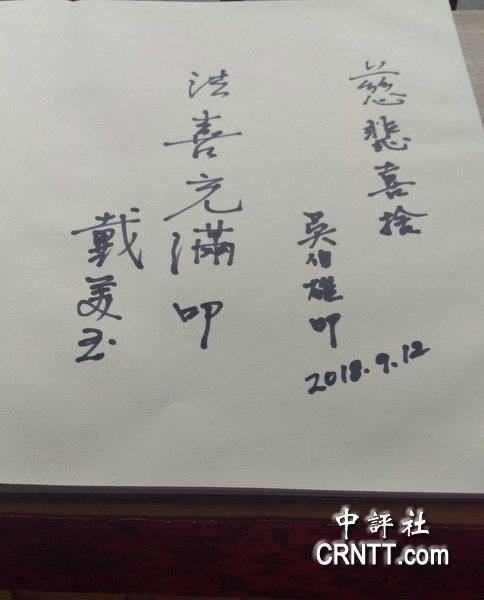 慈悲喜捨
吳伯雄叩
2018.9.12
法喜充滿叩
戴美玉
中評社
CRNTT.com